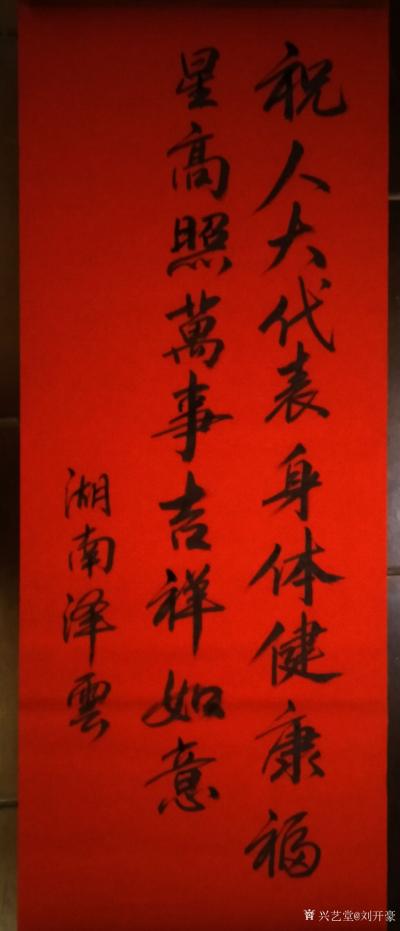 祝人大代表身体健康福
星高照萬事吉祥如意
湖南泽雲
兴艺堂@刘开豪